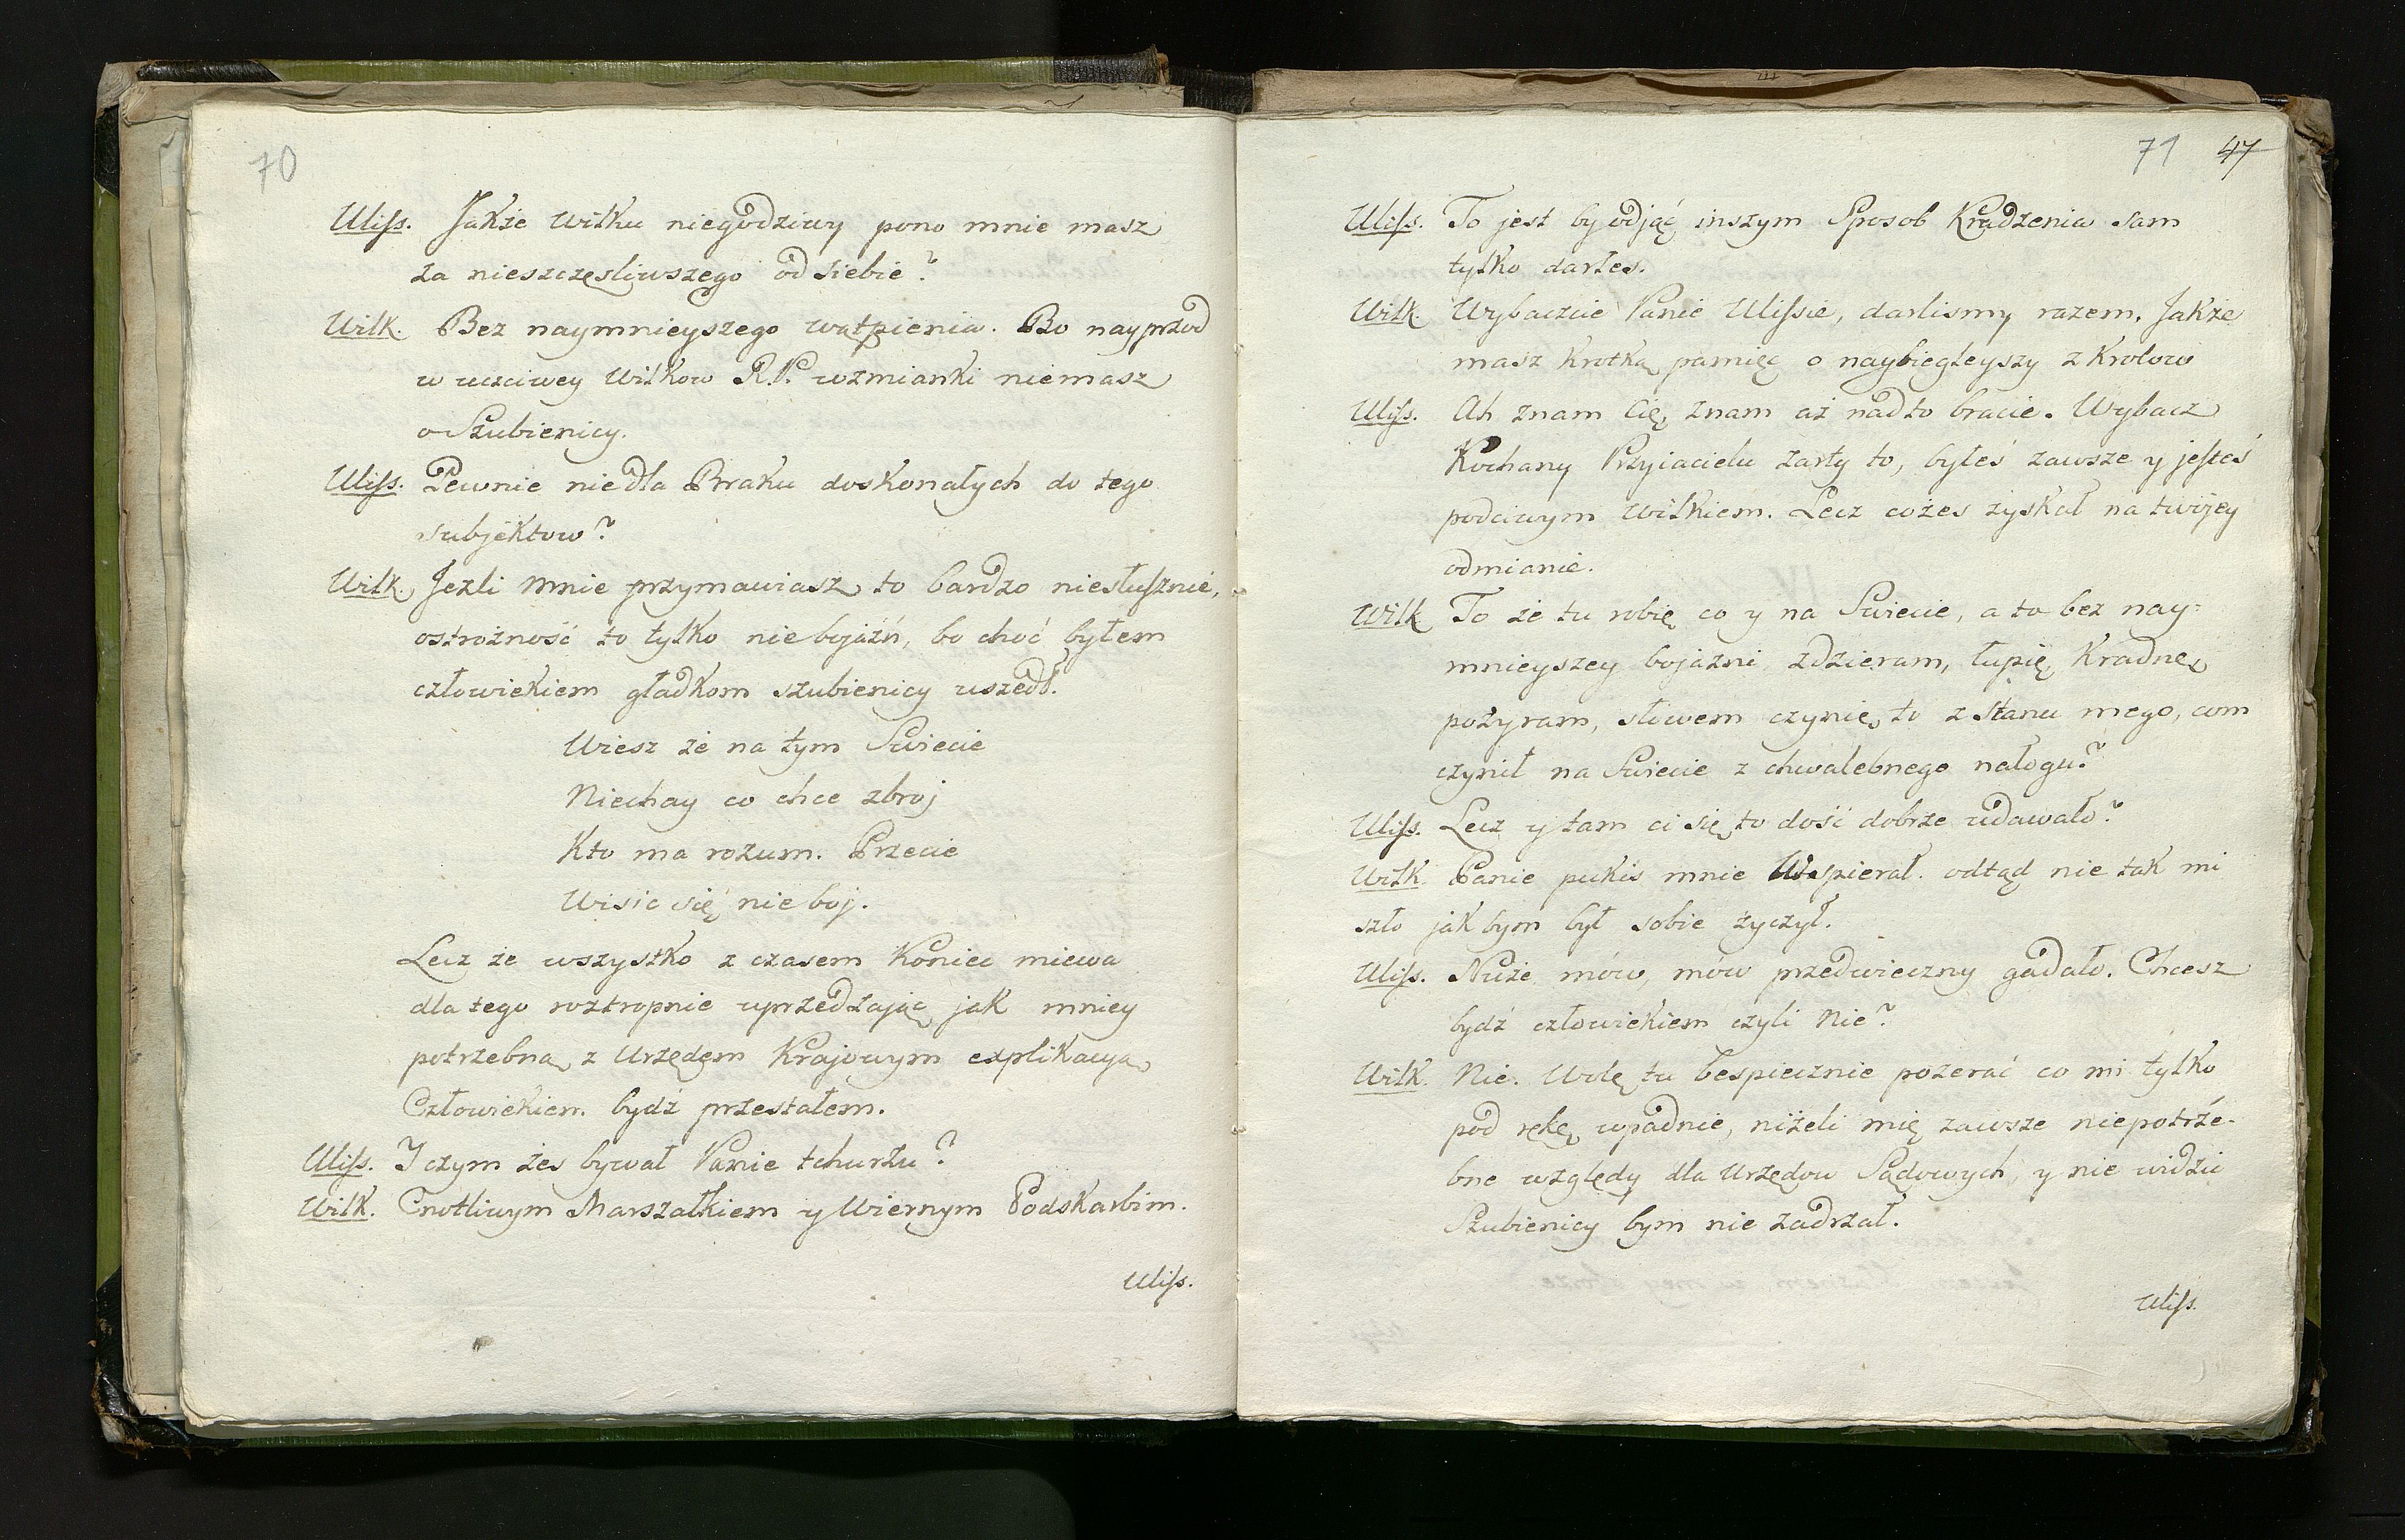 70
Uliss. Jakże Wilku niegodziwy pono mnie masz
za nieszczęsliwszego od siebie?
Wilk. Bez naymnieyszego wątpienia. Bo nayprzod
w uczciwey Wilkow R.P. wzmianki niemasz
o Szubienicy.
Uliss. Pewnie niedla Braku doskonałych do tego
subjektow?
Wilk. Jezli mnie przymawiasz to bardzo niesłusznie,
ostrożność to tylko nie bojaźń, bo choć byłem
człowiekiem gładkom szubienicy uszedł.
Wiesz że na tym Swiecie
Niechay co chce zbroj
Kto ma rozum. Przecie
Wisic się nie boj.
Lecz że wszystko z czasem Koniec miewa
dla tego roztropnie uprzedzając jak mniey
potrzebną z Urzędem Krajowym explikacyą
Człowiekiem bydź przestałem.
Uliss. I czym żes bywał Panie tchurzu?
Wilk. Cnotliwym Marszałkiem y Wiernym Podskarbim.
Uliss.
71 47
Uliss. To jest by odjąć inszym Sposob Kradzenia sam
tylko darłes.
Wilk. Wybaczcie Panie Ulissie, darlismy razem. Jakże
masz krotką pamięć o naybiegleyszy z Krolow
Uliss. Ah znam Cię, znam aż nadto bracie. Wybacz
Kochany Przyiacielu żarty to, byłeś zawsze y jesteś
podciwym Wilkiem. Lecz cożes zyskał na twojey
odmianie.
Wilk To że tu robię co y na Swiecie, a to bez nay=
mnieyszey bojazni zdzieram, łupię, Kradnę,
pożyram, słowem czynię to z Stanu mego, com
czynił na Swiecie z chwalebnego nałogu?
Uliss. Lecz y tam ci się to dość dobrze udawało?
Wilk. Panie pukis mnie Wspierał. odtąd nie tak mi
szło jak bym był sobie życzył.
Uliss. Nuże mów, mów przedwieczny gadało. Chcesz
bydź człowiekiem czyli Nie?
Wilk. Nie. Wolę tu bespiecznie pozerać co mi tylko
pod rękę wpadnie, niżeli mię zawsze niepotrze-
bne względy dla Urzędow Sądowych, y nie widzic
Szubienicy bym nie zadrzał.
Uliss.